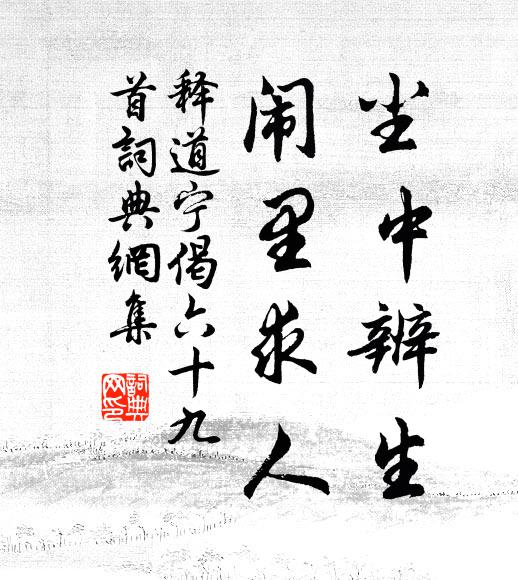 尘中辨生
闹里求人
释道宁偈六十九
首词典網集
詞典网印